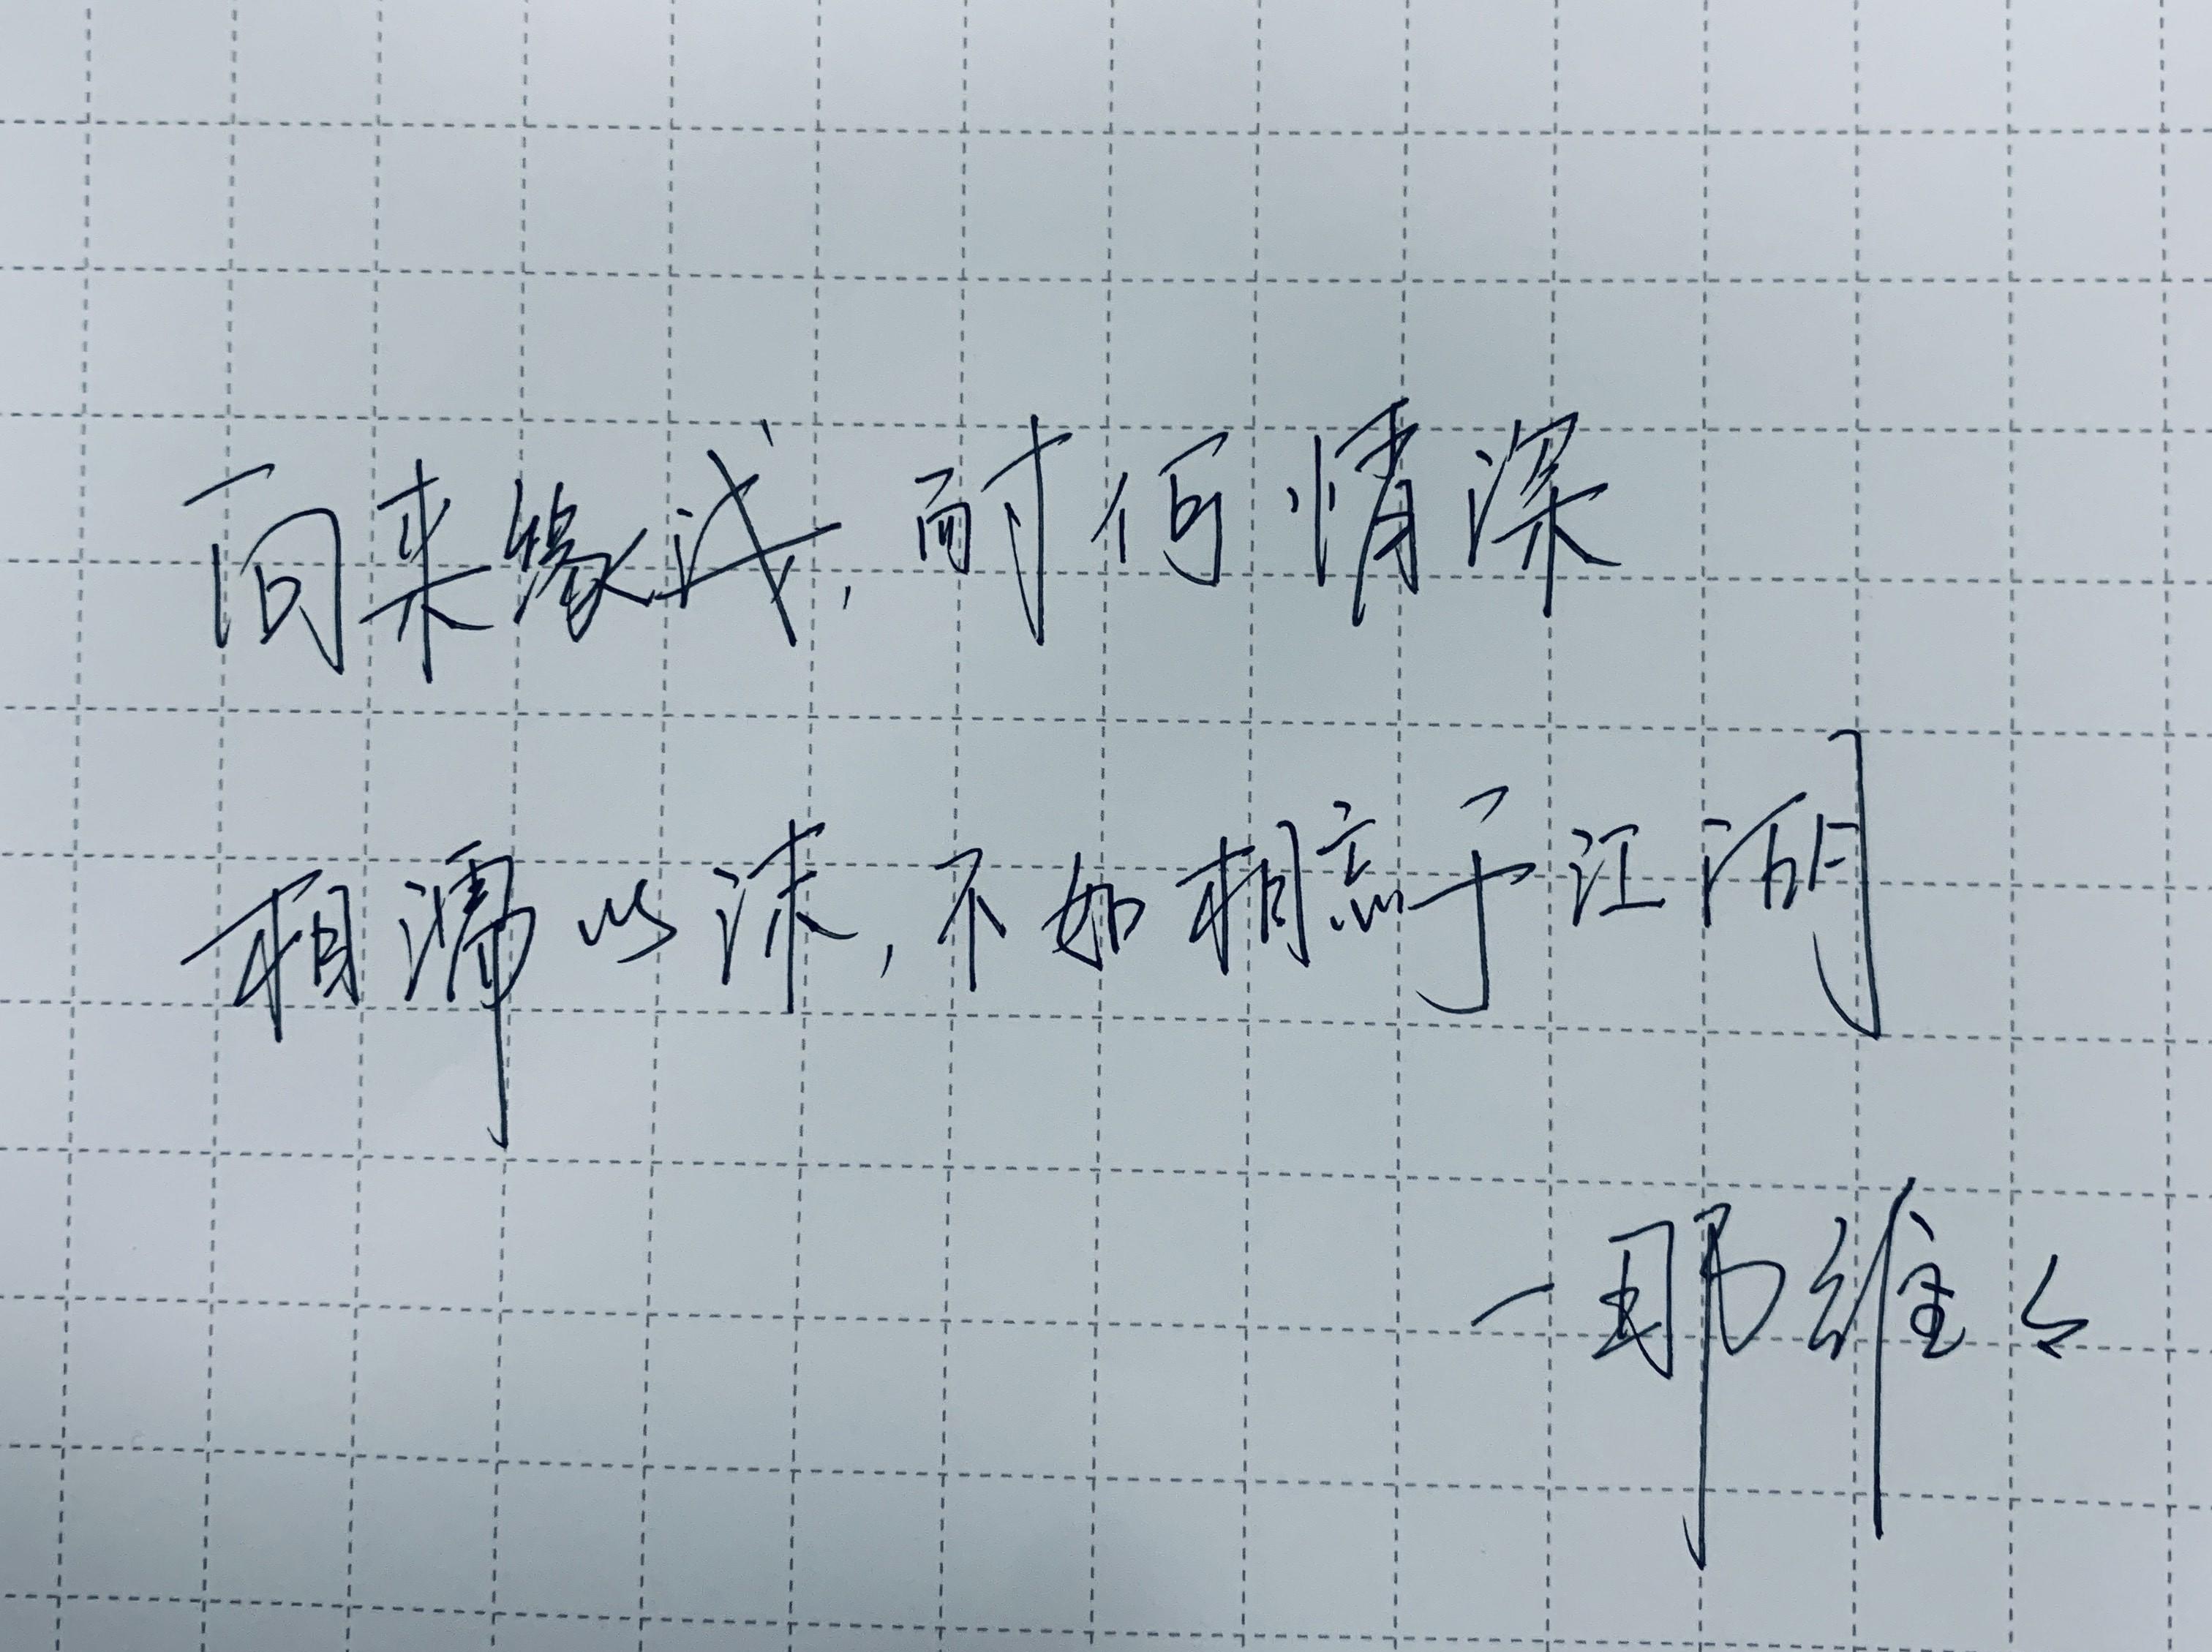 向来缘浅,耐何情深
相濡以沫,不如相忘于江湖
一那维